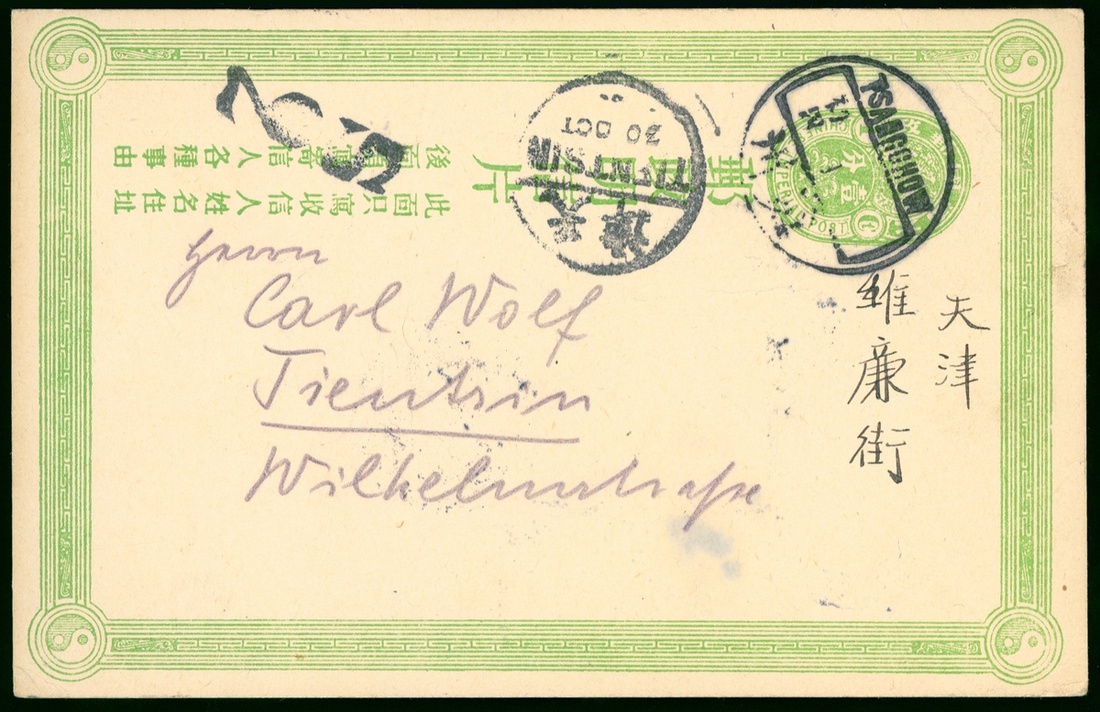 TSANGCHOW
壹分
TIENTSIN
OCT
天津
郵政明信片
此面只寫收信人姓名住址
寄信人各種事由
Herrn
Carl Wolf
Tientsin
Wilhelmstraße
天津
維廉街